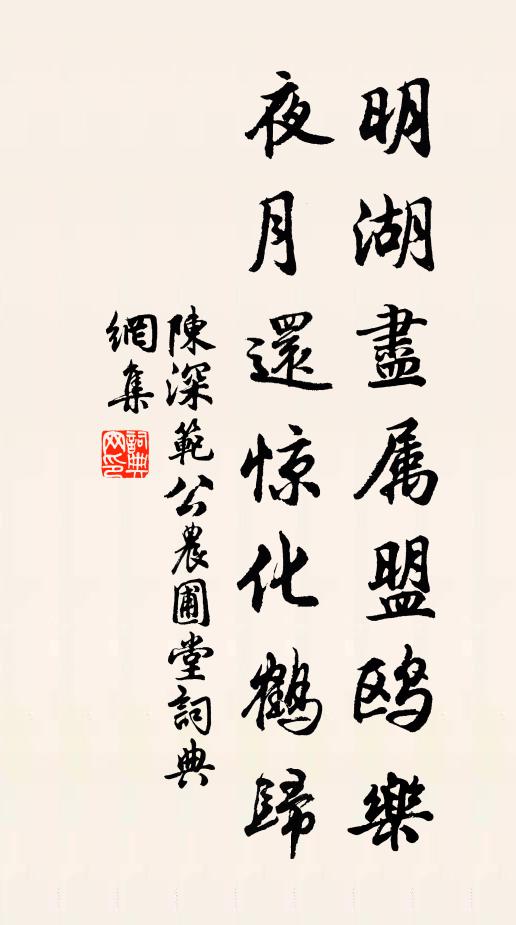 明湖盡属盟鸥樂
夜月還惊化鹤歸
陳深範公農圃堂詞典
網集
詞典網印